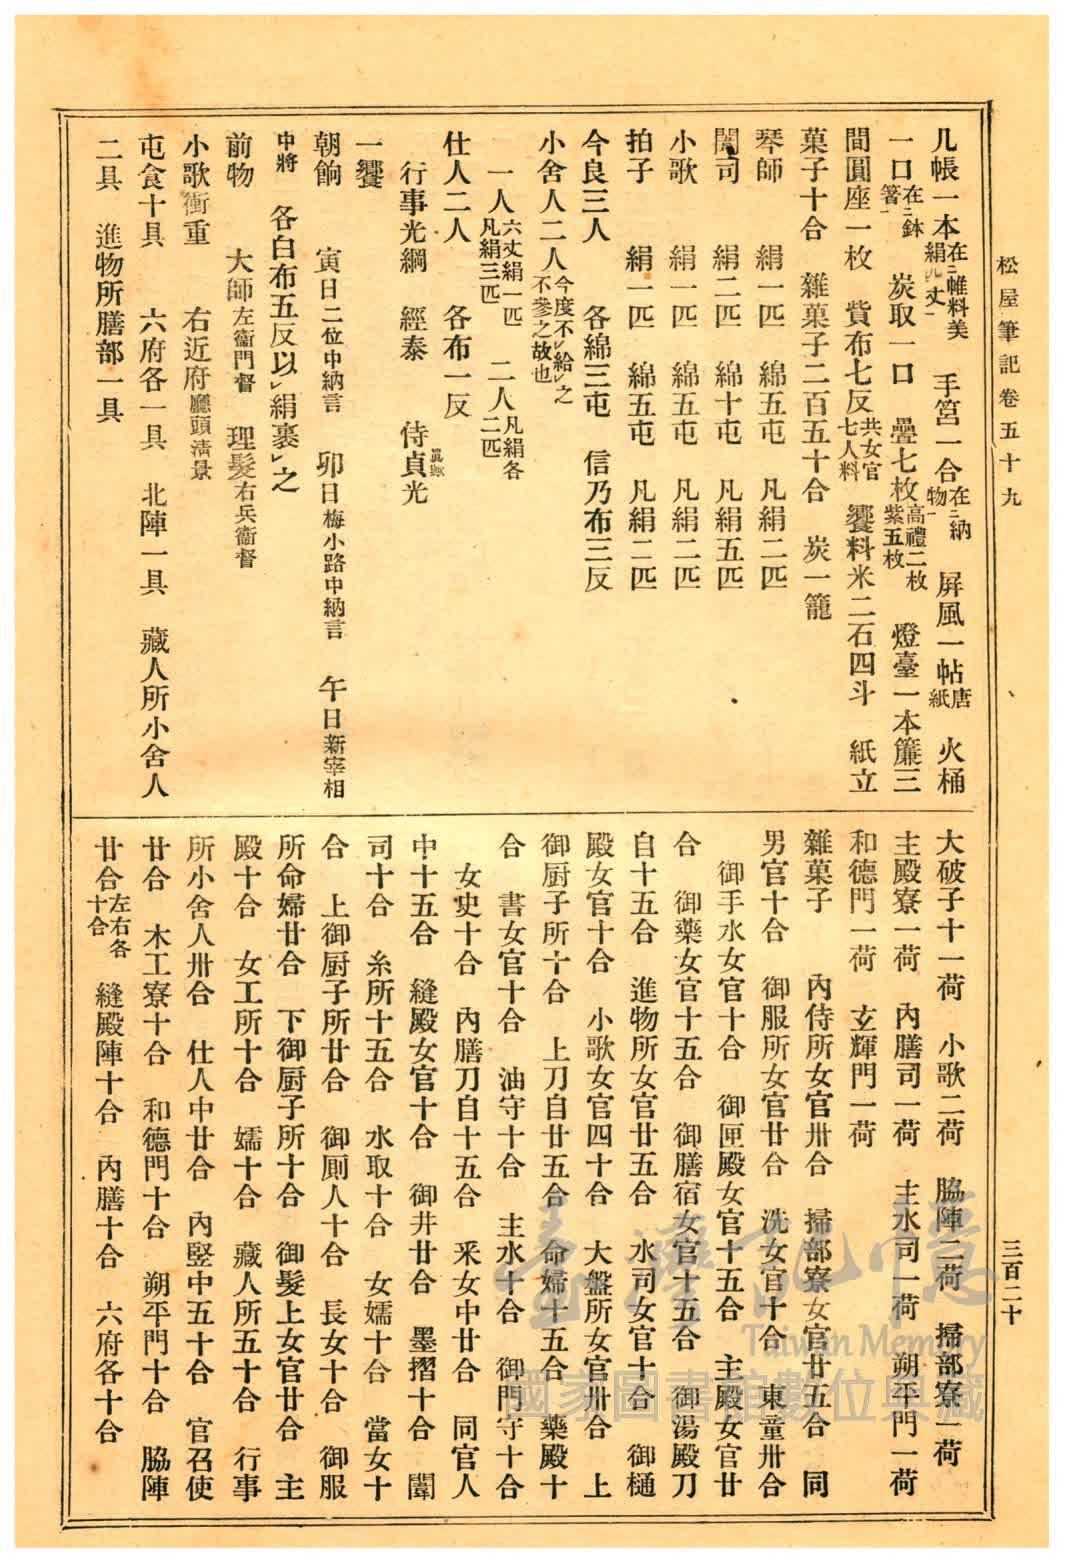 松屋筆記卷五十九
三百二十
几帳一本在ニ帷料美絹八丈一　手筥一合在ニ納物一　屏風一帖唐紙　火桶
一口在ニ鉢箸一　炭取一口　疊七枚高禮二枚紫五枚　燈臺一本簾三
間圓座一枚　貲布七反共女官七人料　饗料米二石四斗　紙立
菓子十合　雜菓子二百五十合　炭一籠
琴師　絹一匹　綿五屯　凡絹二匹
闈司　絹二匹　綿十屯　凡絹五匹
小歌　絹一匹　綿五屯　凡絹二匹
拍子　絹一匹　綿五屯　凡絹二匹
今良三人　各綿三屯　信乃布三反
小舍人二人今度不レ給レ之不參之故也
一人六丈絹一匹凡絹三匹　二人凡絹各二匹
仕人二人　各布一反
行事光綱　經泰　侍貞光
一饗
朝餉　寅日二位中納言　卯日梅小路中納言　午日新宰相
中將　各白布五反以レ絹裹レ之
前物　大師左衞門督　理髮右兵衞督
小歌衝重　右近府廳頭淸景
屯食十具　六府各一具　北陣一具　藏人所小舍人
二具　進物所膳部一具
大破子十一荷　小歌二荷　脇陣二荷　掃部寮一荷
主殿寮一荷　內膳司一荷　主水司一荷　朔平門一荷
和德門一荷　玄輝門一荷
雜菓子　內侍所女官卅合　掃部寮女官廿五合　同
男官十合　御服所女官廿合　洗女官十合　東童卅合
御手水女官十合　御匣殿女官十五合　主殿女官廿
合　御藥女官十五合　御膳宿女官十五合　御湯殿刀
自十五合　進物所女官廿五合　水司女官十合　御樋
殿女官十合　小歌女官四十合　大盤所女官卅合　上
御厨子所十合　上刀自廿五合　命婦十五合　藥殿十
合　書女官十合　油守十合　主水十合　御門守十合
女史十合　內膳刀自十五合　釆女中廿合　同官人
中十五合　縫殿女官十合　御井廿合　墨摺十合　闈
司十合　糸所十五合　水取十合　女嬬十合　當女十
合　上御厨子所廿合　御厠人十合　長女十合　御服
所命婦廿合　下御厨子所十合　御髮上女官廿合　主
殿十合　女工所十合　嬬十合　藏人所五十合　行事
所小舍人卅合　仕人中廿合　內竪中五十合　官召使
廿合　木工寮十合　和德門十合　朔平門十合　脇陣
廿合左右各十合　縫殿陣十合　內膳十合　六府各十合
臺灣記憶
Taiwan Memory
國家圖書館數位典藏